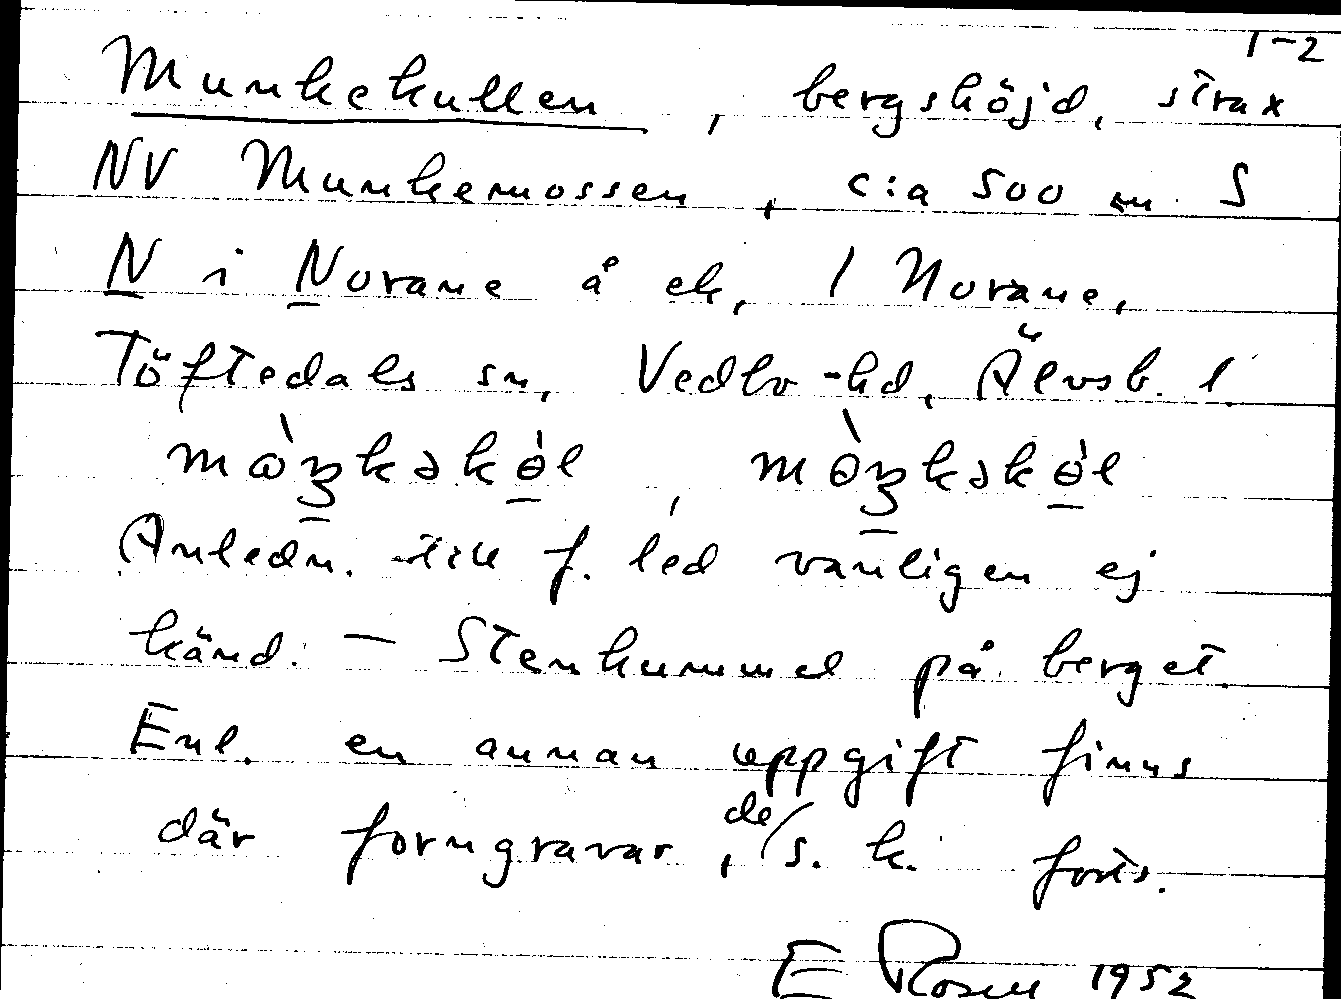 1-2
Munkekullen, bergshöjd, strax
NV Munkemossen, c:a 500 m S
N i Norane å ek, 1 Norane,
Töftedals sn, Vedbo hd, Älvsb. l.
Anledn. till f. led vanligen ej
känd. - Stenkummel på berget.
Enl. en annan uppgift finns
där forngravar, de s. k. forts.
E Rosen 1952